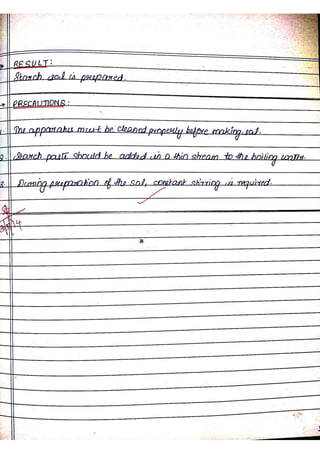 RESULT:
Starch sol is prepared.
PRECAUTIONS:
1. The apparatus must be cleaned properly before making sol.
2. Starch paste should be added in a thin stream to the boiling water.
3. During preparation of the sol, constant stirring is required.